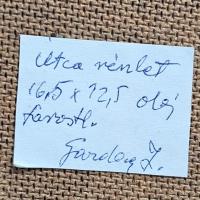 Utca részlet
16,5 x 12,5 olaj
farostl.